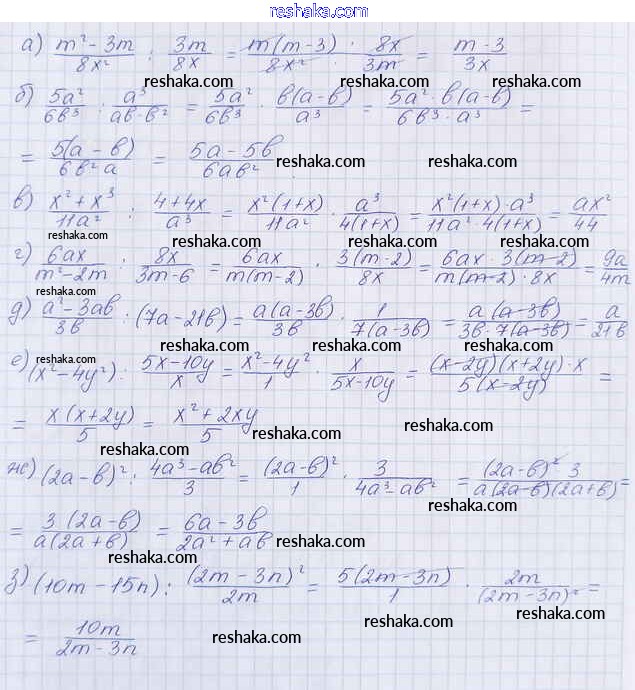 reshaka.com
а) (m² - 3m)/(8x²) : 3m/(8x) = m(m-3)/(8x²) · 8x/(3m) = (m-3)/(3x)
reshaka.com reshaka.com reshaka.com
б) 5a²/(6b³) : a³/(ab-b²) = 5a²/(6b³) · b(a-b)/a³ = 5a²·b(a-b)/(6b³·a³) =
= 5(a-b)/(6b²a) = (5a-5b)/(6ab²)
reshaka.com reshaka.com
в) (x²+x³)/(11a²) : (4+4x)/a³ = x²(1+x)/(11a²) · a³/(4(1+x)) = x²(1+x)·a³/(11a²·4(1+x)) = ax²/44
reshaka.com reshaka.com reshaka.com
г) 6ax/(m²-2m) : 8x/(3m-6) = 6ax/(m(m-2)) · 3(m-2)/(8x) = 6ax·3(m-2)/(m(m-2)·8x) = 9a/(4m)
reshaka.com reshaka.com reshaka.com
д) (a²-3ab)/(3b) : (7a-21b) = a(a-3b)/(3b) · 1/(7(a-3b)) = a(a-3b)/(3b·7(a-3b)) = a/(21b)
reshaka.com reshaka.com reshaka.com
е) (x²-4y²) : (5x-10y)/x = (x²-4y²)/1 · x/(5x-10y) = (x-2y)(x+2y)·x/(5(x-2y)) =
= x(x+2y)/5 = (x²+2xy)/5
reshaka.com reshaka.com reshaka.com
ж) (2a-b)² : (4a³-ab²)/3 = (2a-b)²/1 · 3/(4a³-ab²) = (2a-b)² 3/(a(2a-b)(2a+b)) =
reshaka.com reshaka.com reshaka.com
= 3(2a-b)/(a(2a+b)) = (6a-3b)/(2a²+ab)
reshaka.com reshaka.com reshaka.com
з) (10m-15n) : (2m-3n)²/(2m) = 5(2m-3n)/1 · 2m/(2m-3n)² =
= 10m/(2m-3n)
reshaka.com reshaka.com reshaka.com